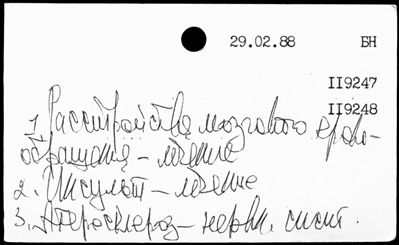 29.02.88 БН
II9247
II9248
1. Расстройства мозгового крово-
обращения – лечение
2. Инсульт – лечение
3. Атеросклероз – нервн. сист.